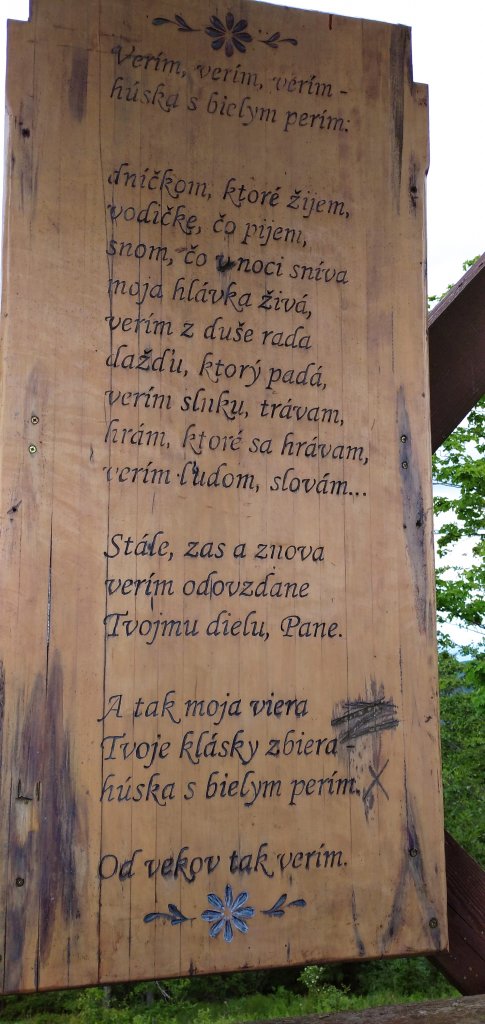 Verím, verím, verím -
húska s bielym perím:
dníčkom, ktoré žijem,
vodičke, čo pijem,
snom, čo v noci sníva
moja hlávka živá,
verím z duše rada
dažďu, ktorý padá,
verím slnku, trávam,
hrám, ktoré sa hrávam,
verím ľudom, slovám...
Stále, zas a znova
verím odovzdane
Tvojmu dielu, Pane.
A tak moja viera
Tvoje klásky zbiera -
húska s bielym perím.
Od vekov tak verím.